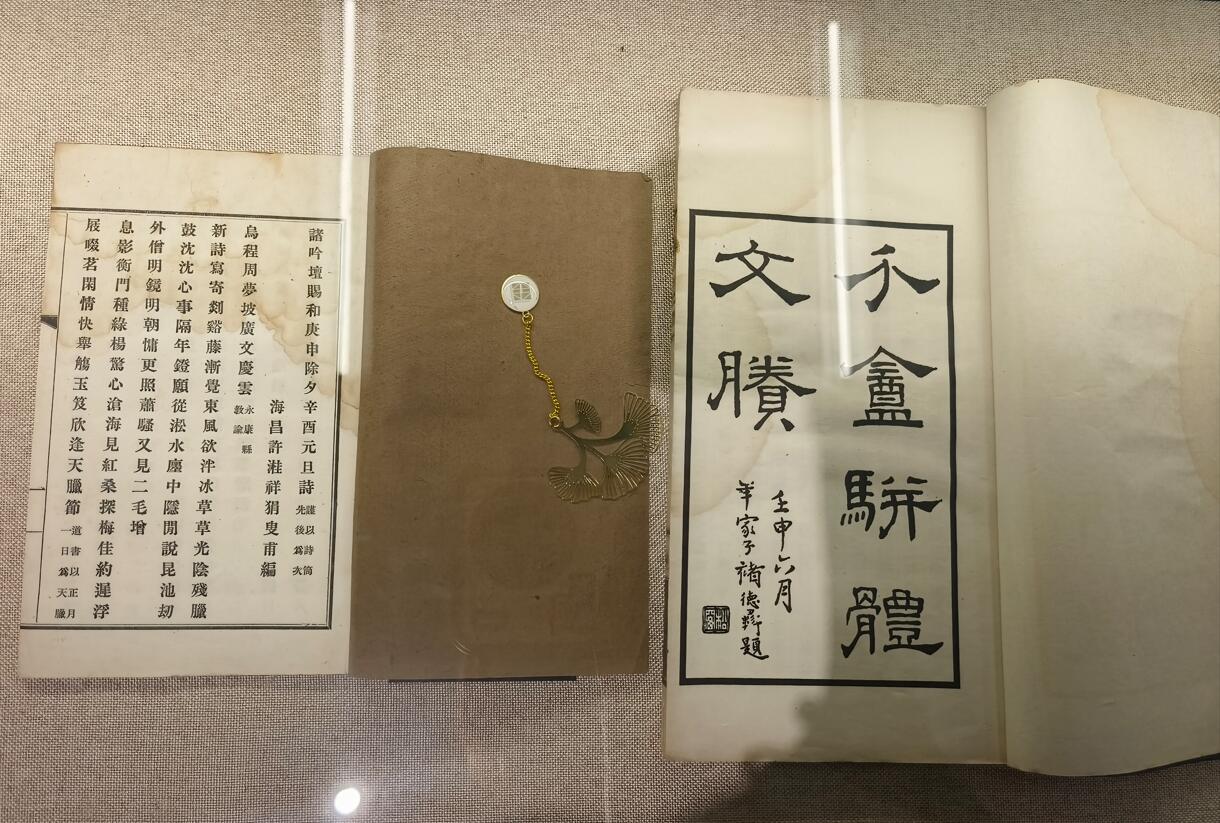 諸吟壇賜和庚申除夕辛酉元旦詩謹以詩筒先後為次
海昌許溎祥狷叟甫編
烏程周夢坡廣文慶雲永康縣教諭
新詩寫寄剡谿藤漸覺東風欲泮冰草草光陰殘臘
鼓沈沈心事隔年鐙願從淞水塵中隱閒說昆池劫
外僧明鏡明朝慵更照蕭騷又見二毛增
息影衡門種綠楊驚心滄海見紅桑探梅佳約遲浮
展啜茗閑情快舉觴玉笈欣逢天臘節道書以正月一日為天臘
盦駢體
文賸
壬申六月
年家子褚德彝題